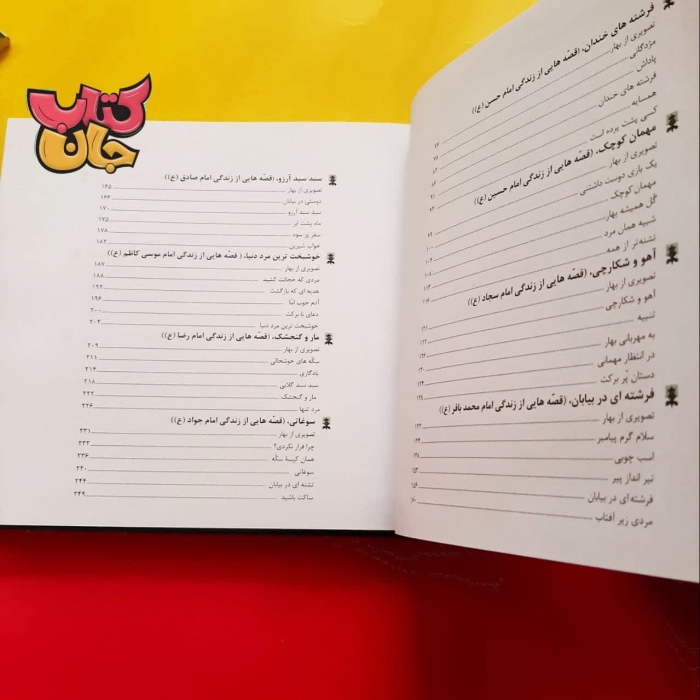 کتاب
جان
فرشته های خندان، (قصّه هایی از زندگی امام حسن (ع))
تصویری از بهار
مژدگانی
پاداش
فرشته های خندان
همسایه
کسی پشت پرده است
مهمان کوچک، (قصّه هایی از زندگی امام حسین (ع))
تصویری از بهار ۹۹
یک بازی دوست داشتنی ۱۰۰
مهمان کوچک ۱۰۴
گل همیشه بهار ۱۰۸
شبیه همان مرد
تشنه‌تر از همه
آهو و شکارچی، (قصّه هایی از زندگی امام سجاد (ع))
تصویری از بهار ۱۲۱
آهو و شکارچی ۱۲۲
تنبیه ۱۲۶
به مهربانی بهار ۱۳۰
در انتظار مهمانی ۱۳۴
دستان پُر برکت ۱۳۸
فرشته ای در بیابان، (قصّه هایی از زندگی امام محمد باقر (ع))
تصویری از بهار ۱۴۳
سلام گرم پیامبر ۱۴۴
اسب چوبی ۱۴۸
تیر انداز پیر ۱۵۳
فرشته ای در بیابان ۱۵۶
مردی زیر آفتاب ۱۶۰
سبد سبد آرزو، (قصّه هایی از زندگی امام صادق (ع))
تصویری از بهار ۱۶۵
دوستی در بیابان ۱۶۶
سبد سبد آرزو ۱۷۰
ماه پشت ابر ۱۷۵
سفر پر سود ۱۷۸
خواب شیرین ۱۸۲
خوشبخت ترین مرد دنیا، ( قصّه هایی از زندگی امام موسی کاظم (ع))
تصویری از بهار ۱۸۷
مردی که خجالت کشید ۱۸۸
هدیه ای که بازگشت ۱۹۲
آدم خوب امّا ۱۹۶
دعای با برکت ۲۰۰
خوشبخت ترین مرد دنیا ۲۰۴
مار و گنجشک، (قصّه هایی از زندگی امام رضا (ع))
تصویری از بهار ۲۰۹
سکّه های خوشحالی ۲۱۱
یادگاری ۲۱۴
سبد سبد گلابی ۲۱۸
مار و گنجشک ۲۲۲
مرد تنها ۲۲۶
سوغاتی، (قصّه هایی از زندگی امام جواد (ع))
تصویری از بهار ۲۳۱
چرا فرار نکردی؟ ۲۳۲
همان کیسهٔ سکّه ۲۳۶
سوغاتی ۲۴۰
تشنه ای در بیابان ۲۴۴
ساکت باشید ۲۴۹